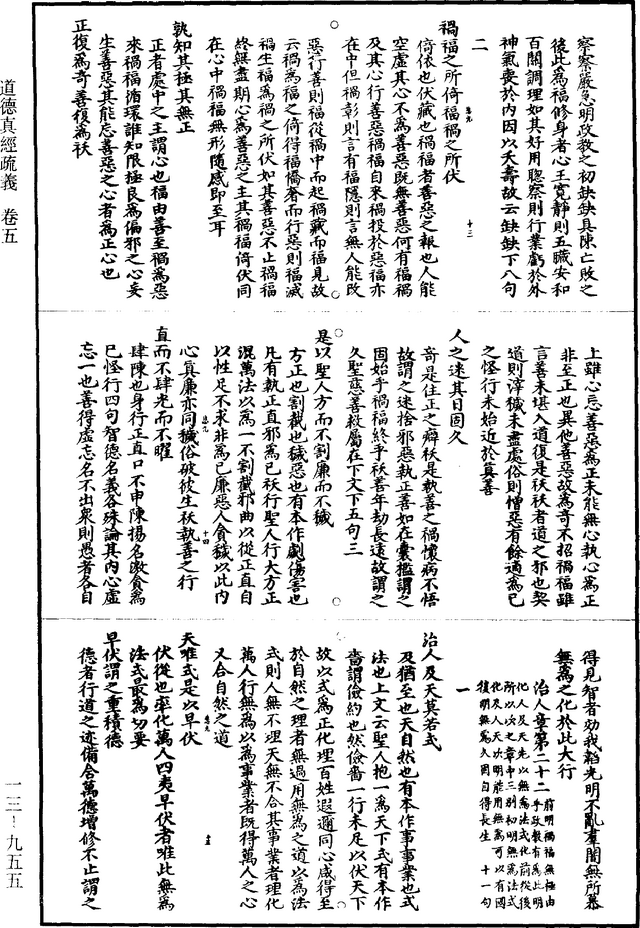 察察嚴急明政教之初缺缺具陳亡敗之
後此為福修身者心王寬靜則五臟安和
百關調理如其好用聰察則行業虧於外
神氣喪於內因以夭壽故云缺缺下八句
二
禍福之所倚福禍之所伏
倚依也伏藏也禍福者善惡之報也人能
空虛其心不為善惡既無善惡何有福禍
及其心行善惡禍福自來禍投於惡福亦
在中但禍彰則言有福隱則言無人能改
惡行善則福從禍中而起禍藏而福見故
云禍為福之倚得福憍奢而行惡則福滅
禍生福為禍之所伏如其善惡不止禍福
終無盡期心為善惡之主其禍福倚伏同
在心中禍福無形隨感即至耳
孰知其極其無正
正者處中之主謂心也福由善至禍為惡
來禍福循環誰知限極良為偏邪之心妄
生善惡其能忘善惡之心者為正心也
正復為奇善復為祅
道德真經疏義 卷五
上雖心忘善惡為正未能無心執心為正
非至正也異他善惡故為奇不招禍福雖
言善未堪入道復是祅祅者道之邪也契
道則滓穢未盡處俗則憎惡有餘適為已
之怪行未始近於真善
人之迷其日固久
奇是住正之癖祅是執善之禍懷病不悟
故謂之迷捨邪惡執正善如在囊檻謂之
固始乎禍福終乎祅善年劫長遠故謂之
久聖慈善救屬在下文下五句三
是以聖人方而不割廉而不穢
方正也割截也穢惡也有本作劌傷害也
凡有執正直邪為已祅行聖人行大方正
混萬法以為一不割截邪曲以從正直自
以性足不求非為已廉惡人貪穢以此內
心真廉亦同穢俗破彼生祅執善之行
直而不肆光而不曜
肆陳也身行正直口不申陳揚名激貪為
已怪行四句智德名義各殊論其內心虛
忘一也善得虛忘名不出眾則愚者各自
得見智者効我韜光明不亂羣闇無所慕
無為之化於此大行
治人章第二十二
一
治人及天莫若式
及猶至也天自然也有本作事事業也式
法也上文云聖人抱一為天下式有本作
嗇謂儉約也然儉嗇一行未足以伏天下
故以式為正化理百姓遐邇同心咸得至
於自然之理者無過用無為之道以為法
式則人無不理天無不合其事業者理化
萬人行無為以為事業者既得萬人之心
又合自然之道
夫唯式是以早伏
伏從也率化萬人四夷早伏者唯此無為
法式最為切要
早伏謂之重積德
德者行道之迹備合萬德增修不止謂之
一三—九五五